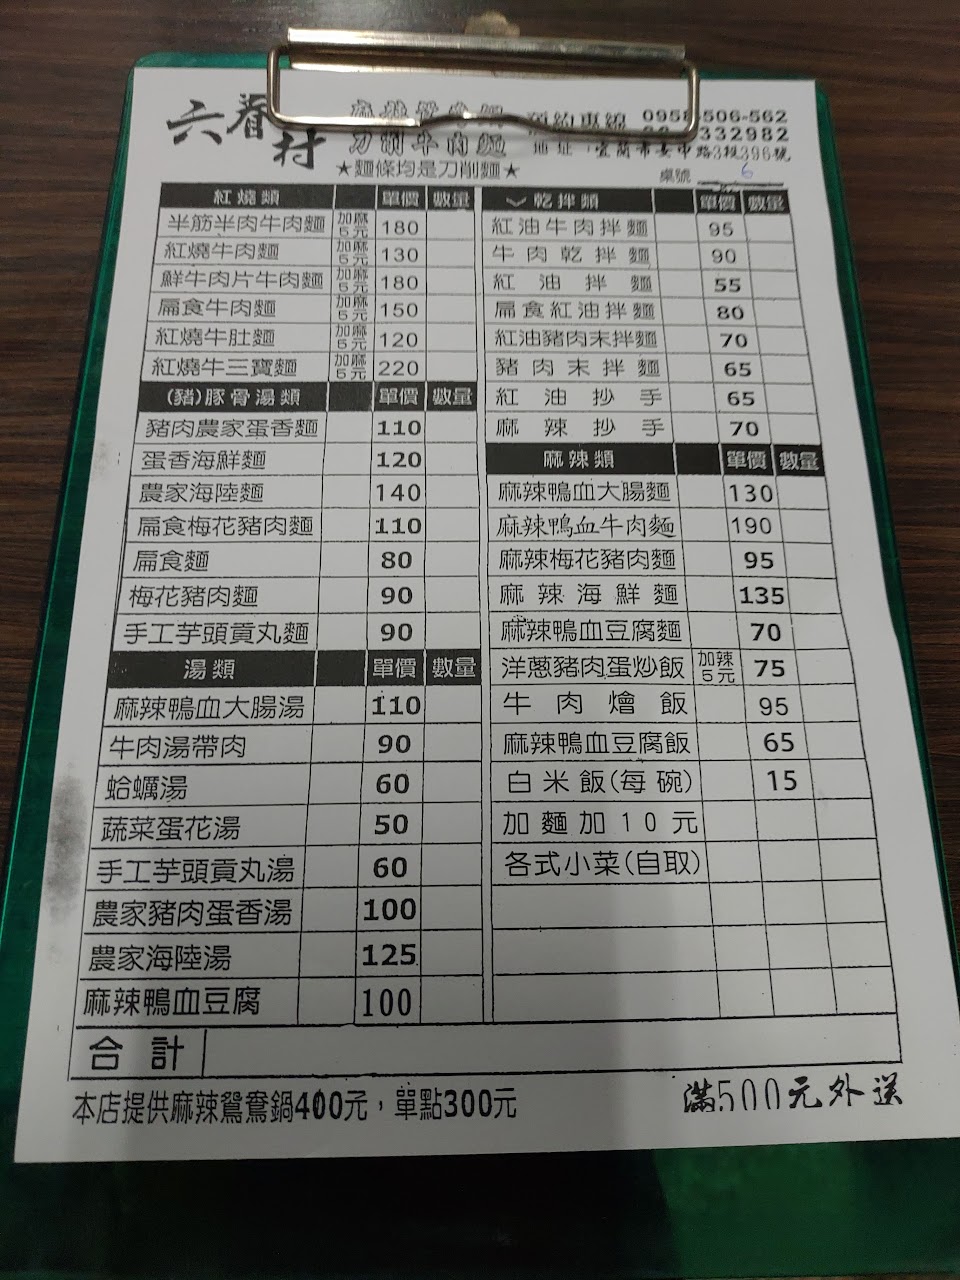 六眷村
刀削牛肉麵
預約專線 0958-506-562
332982
地址:宜蘭市 路3段396號
★麵條均是刀削麵★
桌號 6
紅燒類 單價 數量
半筋半肉牛肉麵 加麻5元 180
紅燒牛肉麵 加麻5元 130
鮮牛肉片牛肉麵 加麻5元 180
扁食牛肉麵 加麻5元 150
紅燒牛肚麵 加麻5元 120
紅燒牛三寶麵 加麻5元 220
(豬)豚骨湯類 單價 數量
豬肉農家蛋香麵 110
蛋香海鮮麵 120
農家海陸麵 140
扁食梅花豬肉麵 110
扁食麵 80
梅花豬肉麵 90
手工芋頭貢丸麵 90
湯類 單價 數量
麻辣鴨血大腸湯 110
牛肉湯帶肉 90
蛤蠣湯 60
蔬菜蛋花湯 50
手工芋頭貢丸湯 60
農家豬肉蛋香湯 100
農家海陸湯 125
麻辣鴨血豆腐 100
乾拌類 單價 數量
紅油牛肉拌麵 95
牛肉乾拌麵 90
紅油拌麵 55
扁食紅油拌麵 80
紅油豬肉末拌麵 70
豬肉末拌麵 65
紅油抄手 65
麻辣抄手 70
麻辣類 單價 數量
麻辣鴨血大腸麵 130
麻辣鴨血牛肉麵 190
麻辣梅花豬肉麵 95
麻辣海鮮麵 135
麻辣鴨血豆腐麵 70
洋蔥豬肉蛋炒飯 加辣5元 75
牛肉燴飯 95
麻辣鴨血豆腐飯 65
白米飯(每碗) 15
加麵加10元
各式小菜(自取)
合計
本店提供麻辣鴛鴦鍋400元，單點300元
滿500元外送